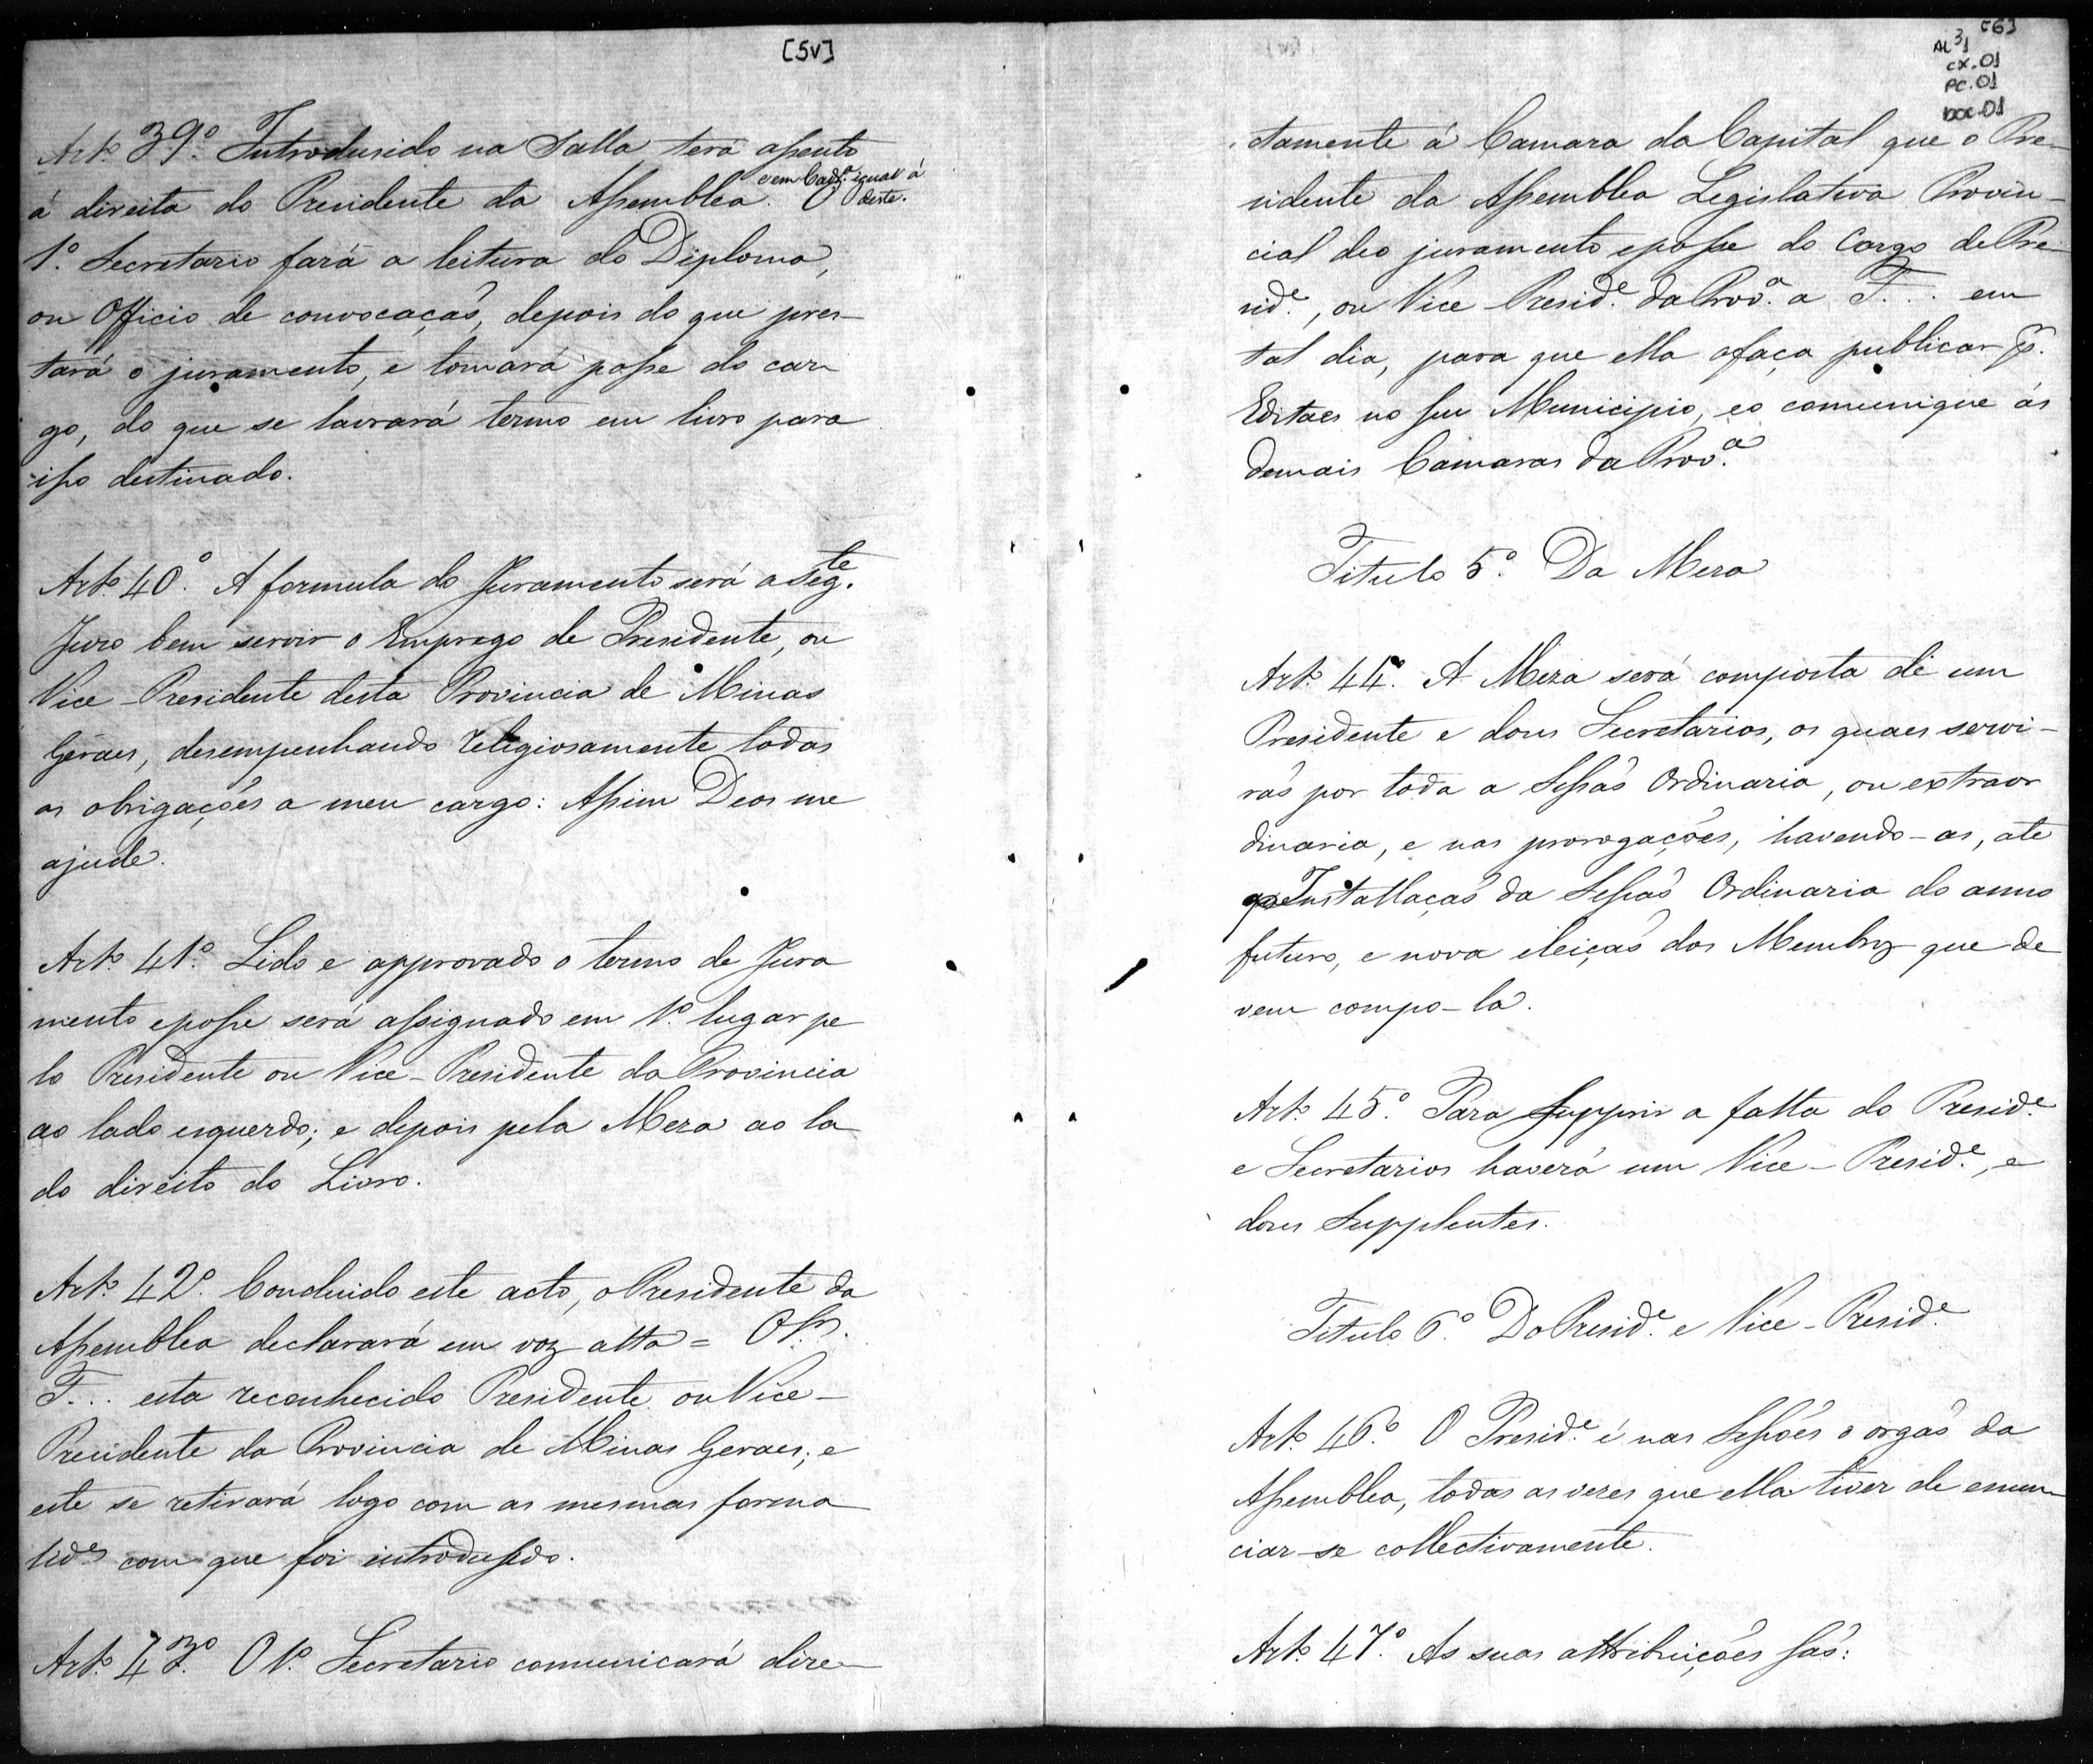 [5v]
Art.º 39.º Introdusido na Salla terá assento
á direita do Presidente da Assemblea. e em Cadr.ª igual á deste. O
1.º Secretario fará a leitura do Diploma,
ou Officio de convocaçaõ, depois do que pres-
tará o juramento, e tomará posse do car-
go, do que se lavrará termo em livro para
isso destinado.
Art.º 40.º A formula do Juramento será a Seg.te
Juro bem servir o Emprego de Presidente, ou
Vice-Presidente desta Provincia de Minas
Geraes, desempenhando religiosamente todas
as obrigações a meu cargo: Assim Deos me
ajude.
Art.º 41.º Lido e approvado o termo de Jura
mento e posse será assignado em 1.º lugar pe
lo Presidente ou Vice-Presidente da Provincia
ao lado esquerdo; e depois pela Meza ao la
do direito do Livro.
Art.º 42.º Concluido este acto, o Presidente da
Assemblea declarará em voz alta = O Sr.
F... esta reconhecido Presidente ou Vice-
Presidente da Provincia de Minas Geraes; e
este se retirará logo com as mesmas forma
lid.es com que foi introdusido.
Art.º 43.º O 1.º Secretario comunicará dire-
[6]
AL 31
cx. 01
pc. 01
doc. 01
ctamente á Camara da Capital que o Pre-
sidente da Assemblea Legislativa Provin-
cial deo juramento e posse do Cargo de Pre-
sid.e, ou Vice Presid.e da Prov.a a F... em
tal dia, para que ella o faça publicar p.r
Editaes no seu Municipio, e o comunique ás
demais Camaras da Prov.a
Titulo 5.º Da Meza
Art.º 44.º A Meza será composta de um
Presidente e dous Secretarios, os quaes servi-
raõ por toda a Sessaõ Ordinaria, ou extraor
dinaria, e nas prorogações, havendo-as, ate
a Installaçaõ da Sessaõ Ordinaria do anno
futuro, e nova eleiçaõ dos Membros que de
vem compo-la.
Art.º 45.º Para Supprir a falta do Presid.e
e Secretarios haverá um Vice-Presid.e, e
dous Supplentes.
Titulo 6.º Do Presid.e e Vice-Presid.e
Art.º 46.º O Presid.e é nas Sessões o orgaõ da
Assemblea, todas as vezes que ella tiver de enun
ciar-se collectivamente.
Art.º 47.º As suas attribuições saõ: